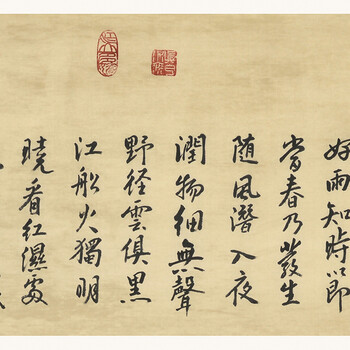 好雨知時節
當春乃發生
随風潛入夜
潤物細無聲
野径雲俱黑
江船火獨明
曉看紅濕處